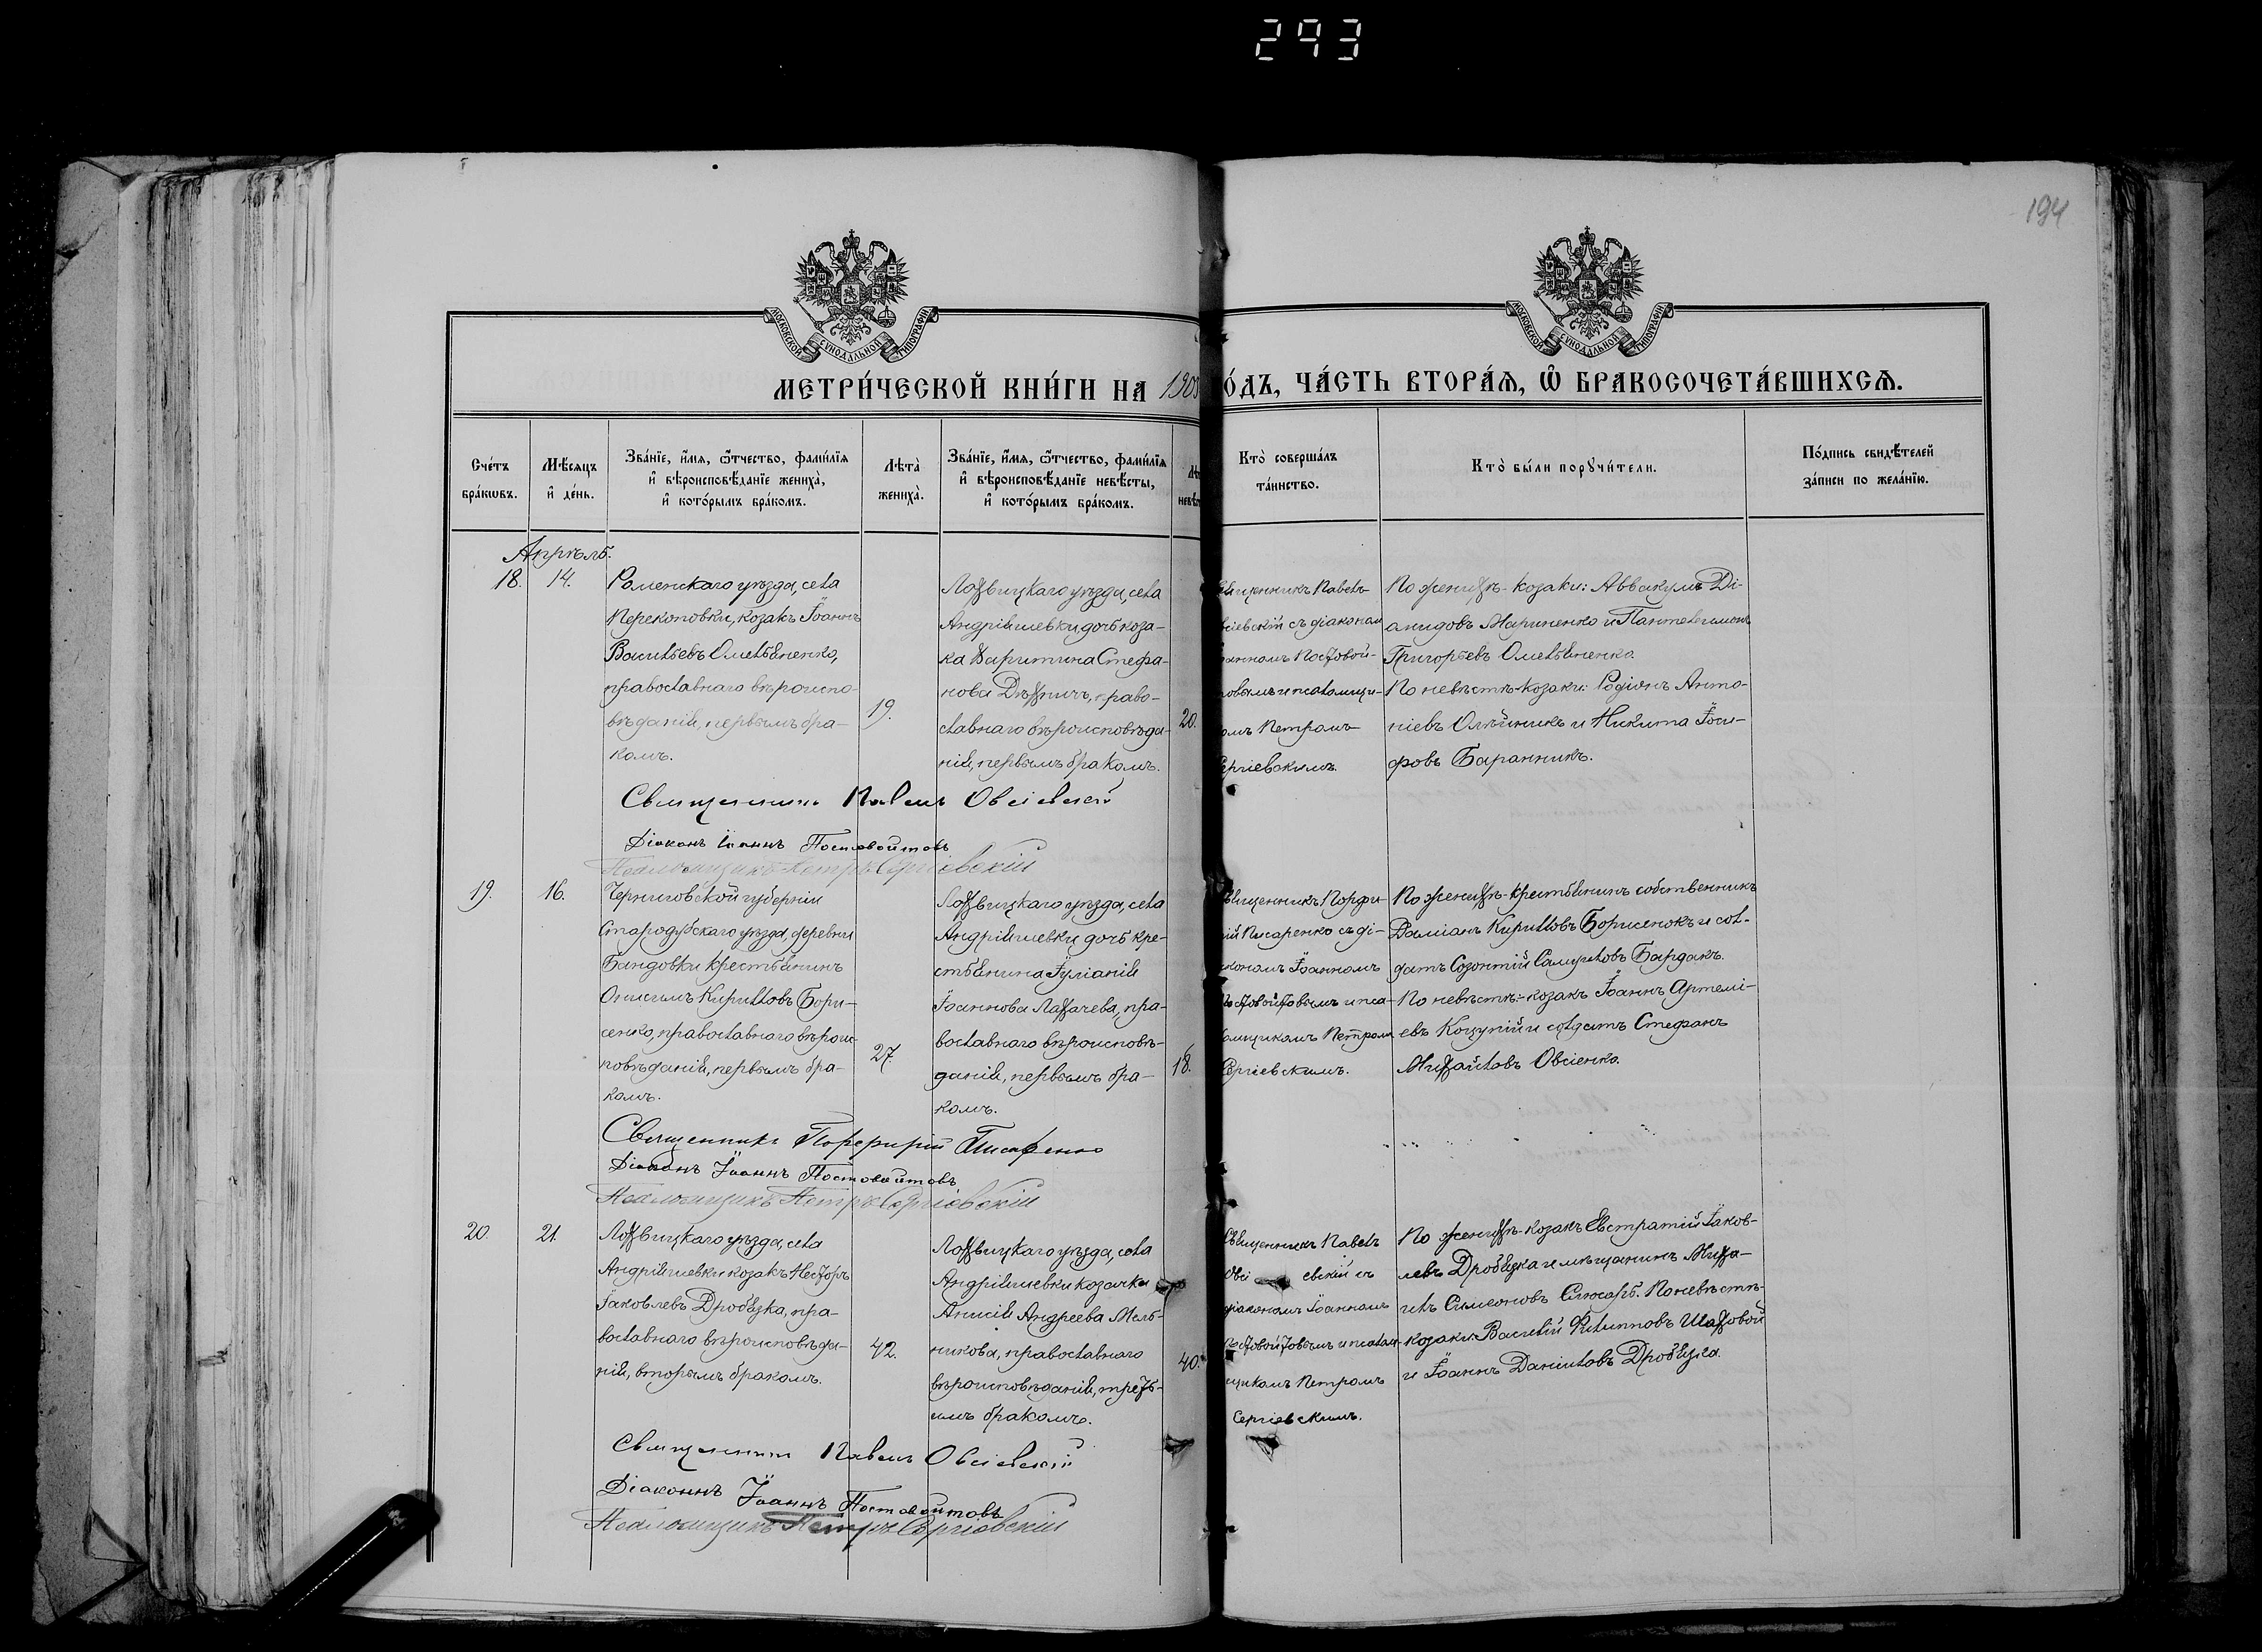 293
194
МОСКОВСКОЙ СѴНОДАЛЬНОЙ ТИПОГРАФІИ
МОСКОВСКОЙ СѴНОДАЛЬНОЙ ТИПОГРАФІИ
МЕТРИ́ЧЕСКОЙ КНИ́ГИ НА 1908
О́ДЪ, ЧА́СТЬ ВТОРА́Ѧ, Ѡ҆ БРАКОСОЧЕТА́ВШИХСѦ.
Сче́тъ
бра́кѡвъ.
Мѣ́сяцъ
и҆ де́нь.
Зва́нїе, и҆́мя, ѻ҆́тчество, фами́лїя
и҆ вѣроисповѣ́данїе жениха̀,
и҆ кото́рымъ бра́комъ.
Лѣта̀
жениха̀.
Зва́нїе, и҆́мя, ѻ҆́тчество, фами́лїя
и҆ вѣроисповѣ́данїе невѣ́сты,
и҆ кото́рымъ бра́комъ.
Кто̀ соверша́лъ
та́инство.
Кто̀ бы́ли порꙋчи́тели.
По́дпись свидѣ́телей
за́писи по жела́нїю.
Апрѣль.
18.
14.
Роменскаго уѣзда, села
Перекоповки, козакъ Іоаннъ
Васильевъ Омельяненко,
православнаго вѣроиспо-
вѣданія, первымъ бра-
комъ.
19.
Лохвицкаго уѣзда, села
Андріяшевки дочь коза-
ка Харитина Стефа-
нова Дѣхничъ, право-
славнаго вѣроисповѣда-
нія, первымъ бракомъ.
20.
священникъ Павелъ
всіевскій съ діакономъ
оанномъ Постовой-
товымъ и псаломщи-
омъ Петромъ
ергіевскимъ.
По женихѣ-козаки: Аввакумъ Ді-
амидовъ Мариненко и Пантелеимонъ
Григорьевъ Омельяненко.
По невѣстѣ-козаки: Родіонъ Анто-
ніевъ Олѣйникъ и Никита Іоси-
фовъ Баранникъ.
Священникъ Павелъ Овсіевскій
Діаконъ Іоаннъ Постовойтовъ
Псаломщикъ Петръ Сергіевскій
19.
16.
Черниговской губерніи
Стародубскаго уѣзда, деревни
Бандовки крестьянинъ
Онисимъ Кирилловъ Бори-
сенко, православнаго вѣроис-
повѣданія, первымъ бра-
комъ.
27.
Лохвицкаго уѣзда, села
Андріяшевки дочь кре-
стьянина Іуліанія
Іоаннова Лахачева, пра-
вославнаго вѣроисповѣ-
данія, первымъ бра-
комъ.
18.
священникъ Порфи-
рій Писаренко съ ді-
акономъ Іоанномъ
Постовойтовымъ и пса-
ломщикомъ Петромъ
Сергіевскимъ.
По женихѣ-крестьянинъ собственникъ
Даміанъ Кирилловъ Борисенокъ и сол-
датъ Созонтій Самуиловъ Бардакъ.
По невѣстѣ:-козакъ Іоаннъ Артемі-
евъ Коцупій и солдатъ Стефанъ
Михайловъ Овсіенко.
Священникъ Порфирій Писаренко
Діаконъ Іоаннъ Постовойтовъ
Псаломщикъ Петръ Сергіевскій
20.
21.
Лохвицкаго уѣзда, села
Андріяшевки козакъ Несторъ
Іаковлевъ Дробязка, пра-
вославнаго вѣроисповѣда-
нія, вторымъ бракомъ.
42.
Лохвицкаго уѣзда, села
Андріяшевки козачка
Анисія Андреева Мель-
никова, православнаго
вѣроисповѣданія, треть-
имъ бракомъ.
40.
Священникъ Павелъ
Овсі евскій съ
діакономъ Іоанномъ
Постовойтовымъ и псалом-
щикомъ Петромъ
Сергіевскимъ.
По женихѣ-козакъ Евстратій Іаков-
левъ Дробязка и мѣщанинъ Миха-
илъ Симеоновъ Слюсарь. По невѣстѣ-
козаки: Василій Филипповъ Шаховой
и Іоаннъ Даніиловъ Дробязка.
Священникъ Павелъ Овсіевскій
Діаконъ Іоаннъ Постовойтовъ
Псаломщикъ Петръ Сергіевскій